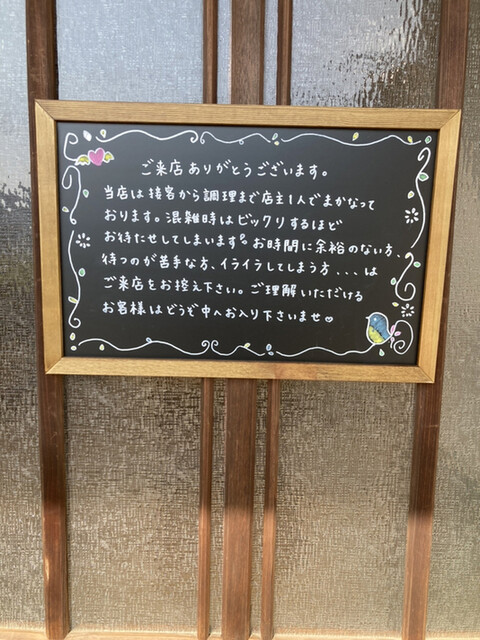 ご来店ありがとうございます。
当店は接客から調理まで店主1人でまかなって
おります。混雑時はビックリするほど
お待たせしてしまいます。お時間に余裕のない方、
待つのが苦手な方、イライラしてしまう方...は
ご来店をお控え下さい。ご理解いただける
お客様はどうぞ中へお入り下さいませ♡